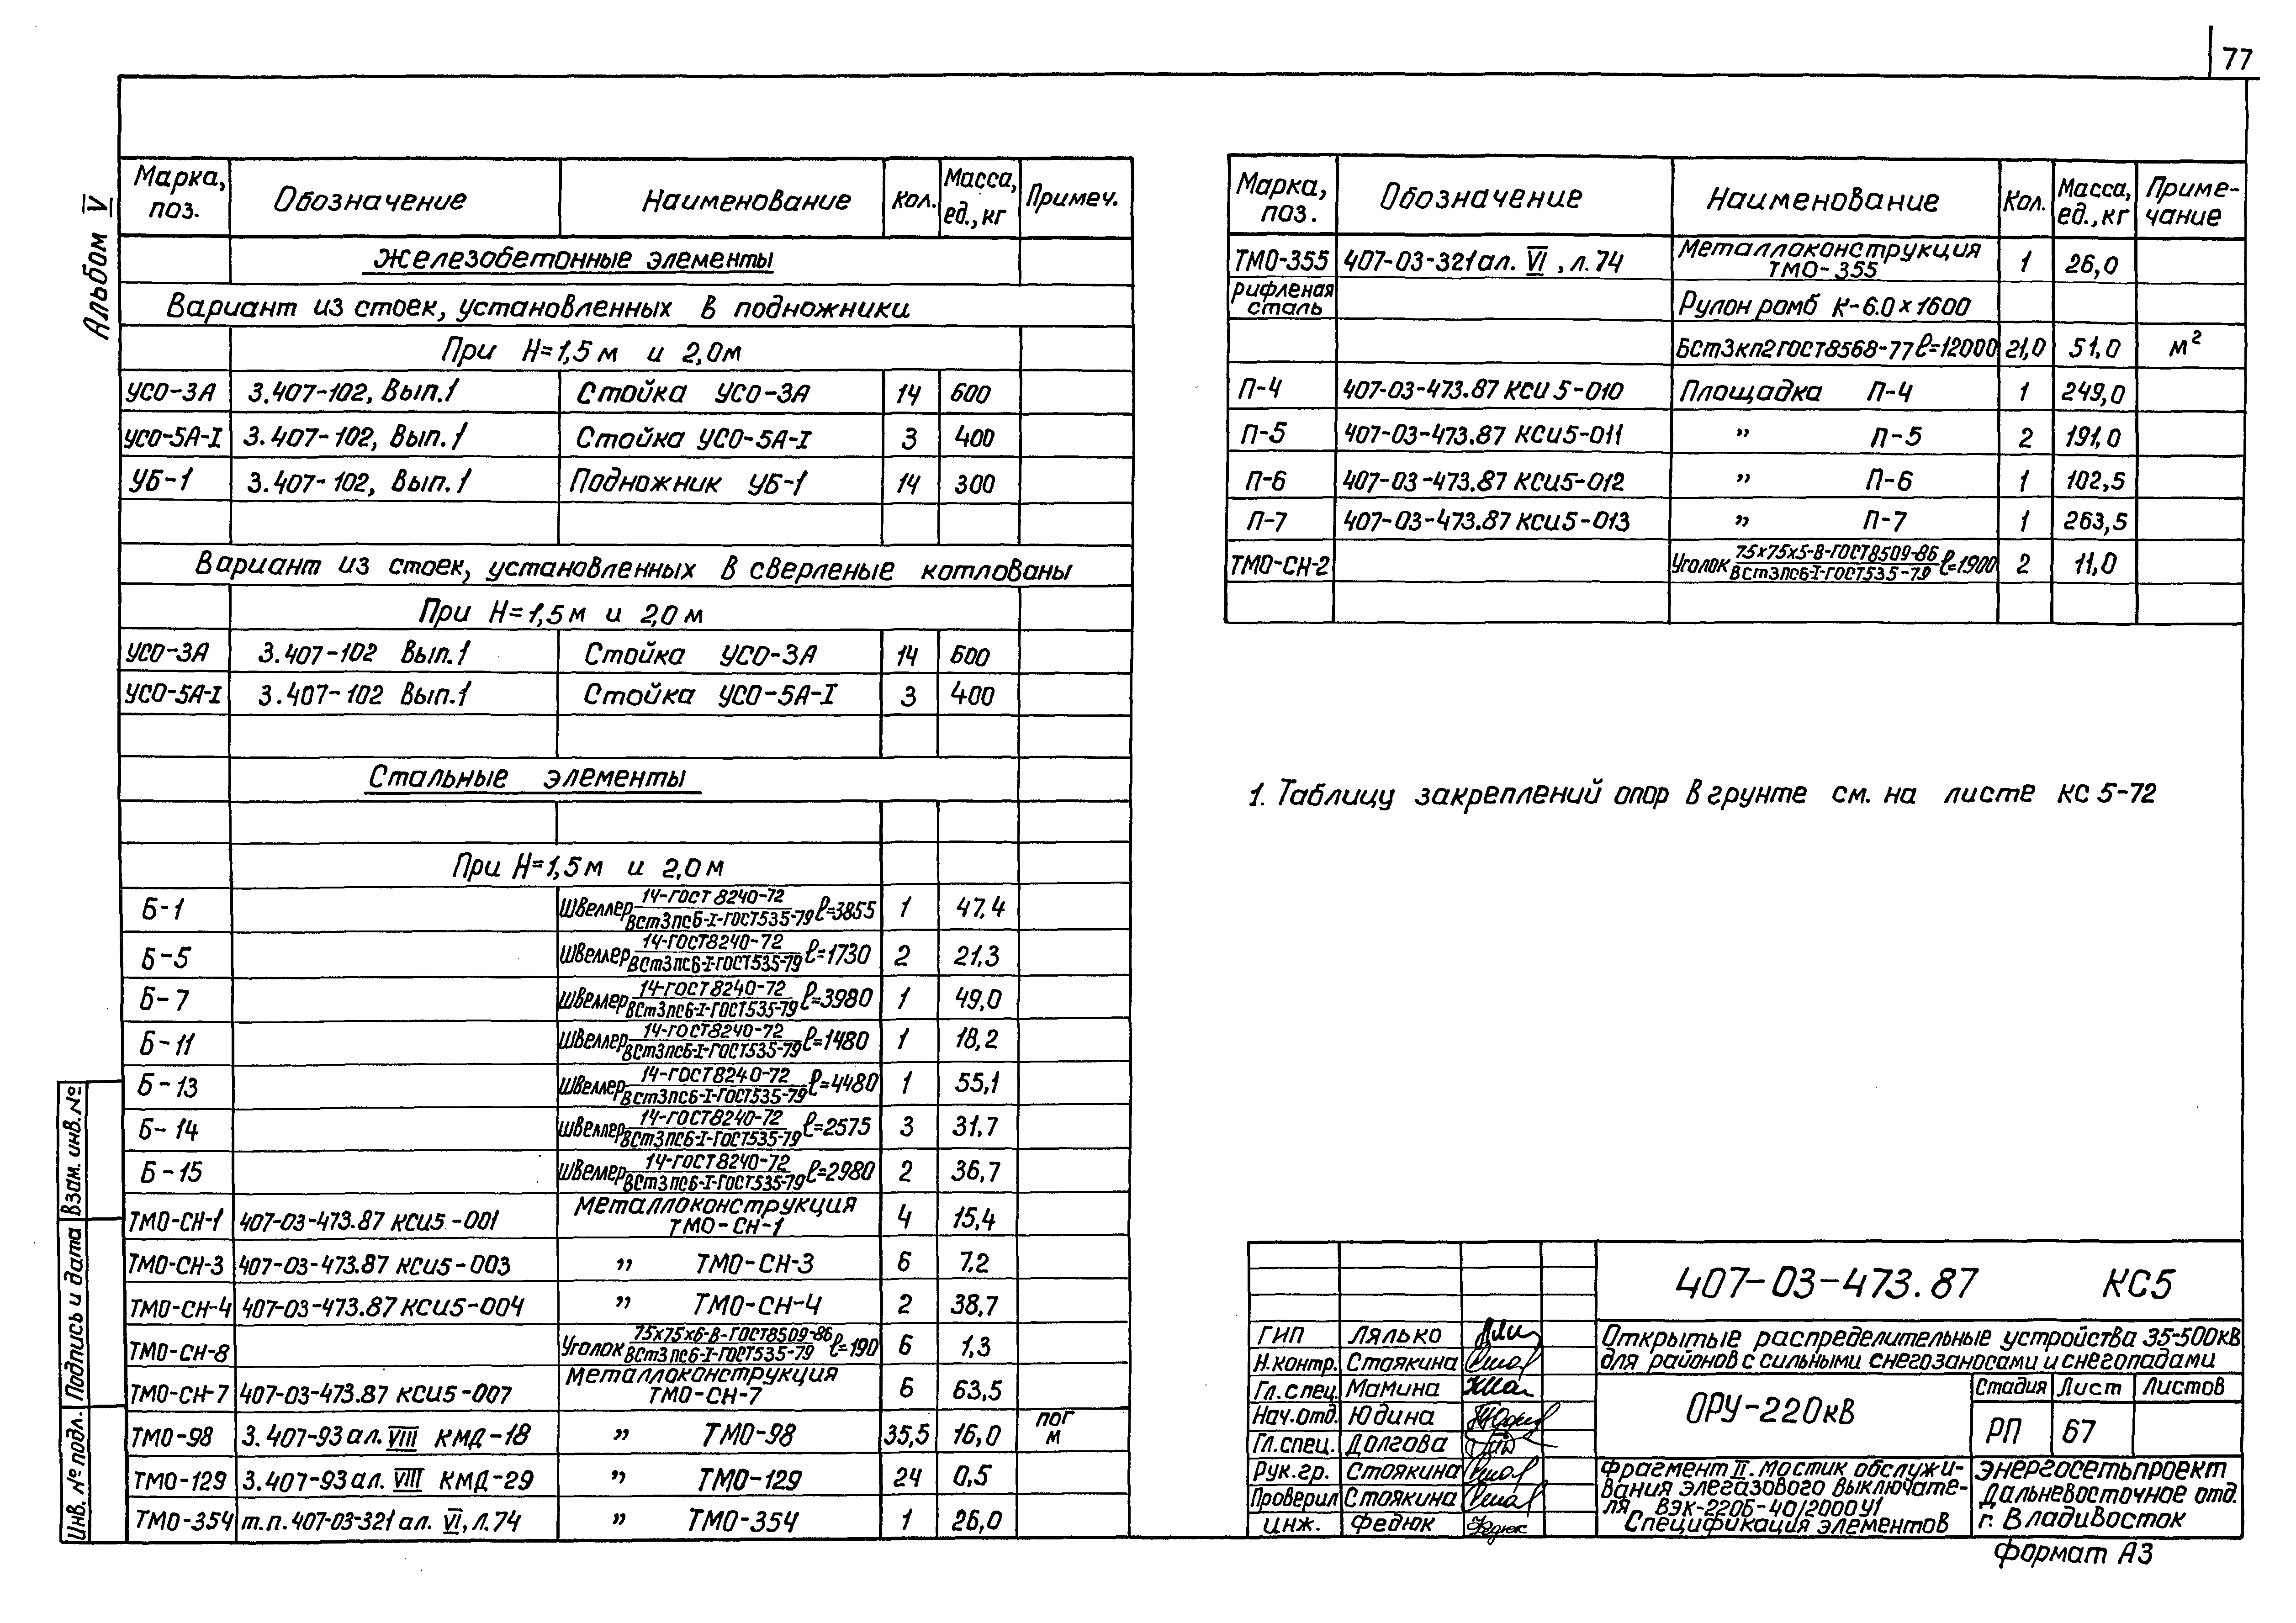 77
Альбом V
Марка, поз. Обозначение Наименование Кол. Масса, ед., кг Примеч.
Железобетонные элементы
Вариант из стоек, установленных в подножники
При Н=1,5м и 2,0м
УСО-3А 3.407-102, Вып.1 Стойка УСО-3А 14 600
УСО-5А-I 3.407-102, Вып.1 Стойка УСО-5А-I 3 400
УБ-1 3.407-102, Вып.1 Подножник УБ-1 14 300
Вариант из стоек, установленных в сверленые котлованы
При Н=1,5м и 2,0м
УСО-3А 3.407-102 Вып.1 Стойка УСО-3А 14 600
УСО-5А-I 3.407-102 Вып.1 Стойка УСО-5А-I 3 400
Стальные элементы
При Н=1,5м и 2,0м
Б-1 Швеллер 14-ГОСТ 8240-72 / ВСт3пс6-I-ГОСТ535-79 ℓ=3855 1 47,4
Б-5 Швеллер 14-ГОСТ8240-72 / ВСт3пс6-I-ГОСТ535-79 ℓ=1730 2 21,3
Б-7 Швеллер 14-ГОСТ 8240-72 / ВСт3пс6-I-ГОСТ535-79 ℓ=3980 1 49,0
Б-11 Швеллер 14-ГОСТ8240-72 / ВСт3пс6-I-ГОСТ535-79 ℓ=1480 1 18,2
Б-13 Швеллер 14-ГОСТ8240-72 / ВСт3пс6-I-ГОСТ535-79 ℓ=4480 1 55,1
Б-14 Швеллер 14-ГОСТ8240-72 / ВСт3пс6-I-ГОСТ535-79 ℓ=2575 3 31,7
Б-15 Швеллер 14-ГОСТ8240-72 / ВСт3пс6-I-ГОСТ535-79 ℓ=2980 2 36,7
ТМО-СН-1 407-03-473.87 КСИ5-001 Металлоконструкция ТМО-СН-1 4 15,4
ТМО-СН-3 407-03-473.87 КСИ5-003 " ТМО-СН-3 6 7,2
ТМО-СН-4 407-03-473.87 КСИ5-004 " ТМО-СН-4 2 38,7
ТМО-СН-8 Уголок 75х75х6-В-ГОСТ8509-86 / ВСт3пс6-I-ГОСТ535-79 ℓ=190 6 1,3
ТМО-СН-7 407-03-473.87 КСИ5-007 Металлоконструкция ТМО-СН-7 6 63,5
ТМО-98 3.407-93 ал. VIII КМД-18 " ТМО-98 35,5 16,0 пог м
ТМО-129 3.407-93 ал. VIII КМД-29 " ТМО-129 24 0,5
ТМО-354 т.п. 407-03-321 ал. VI, л.74 " ТМО-354 1 26,0
Марка, поз. Обозначение Наименование Кол. Масса, ед., кг Примечание
ТМО-355 407-03-321 ал. VI, л.74 Металлоконструкция ТМО-355 1 26,0
Рифленая сталь Рулон ромб К-6.0×1600
БСт3кп2ГОСТ8568-77 ℓ=12000 21,0 51,0 м²
П-4 407-03-473.87 КСИ 5-010 Площадка П-4 1 249,0
П-5 407-03-473.87 КСИ5-011 " П-5 2 191,0
П-6 407-03-473.87 КСИ5-012 " П-6 1 102,5
П-7 407-03-473.87 КСИ5-013 " П-7 1 263,5
ТМО-СН-2 Уголок 75х75х5-В-ГОСТ8509-86 / ВСт3пс6-I-ГОСТ535-79 ℓ=1900 2 11,0
1. Таблицу закреплений опор в грунте см. на листе КС 5-72
Взам. инв. №
Подпись и дата
Инв. № подл.
407-03-473.87 КС5
ГИП Лялько
Н.контр. Стоякина
Гл.спец. Мамина
Нач.отд. Юдина
Гл.спец. Долгова
Рук.гр. Стоякина
Проверил Стоякина
Инж. Федюк
Открытые распределительные устройства 35-500кВ
для районов с сильными снегозаносами и снегопадами
ОРУ-220кВ
Стадия Лист Листов
РП 67
Фрагмент II. Мостик обслужи-
вания элегазового выключате-
ля ВЭК-220Б-40/2000У1
Спецификация элементов
Энергосетьпроект
Дальневосточное отд.
г. Владивосток
Формат А3